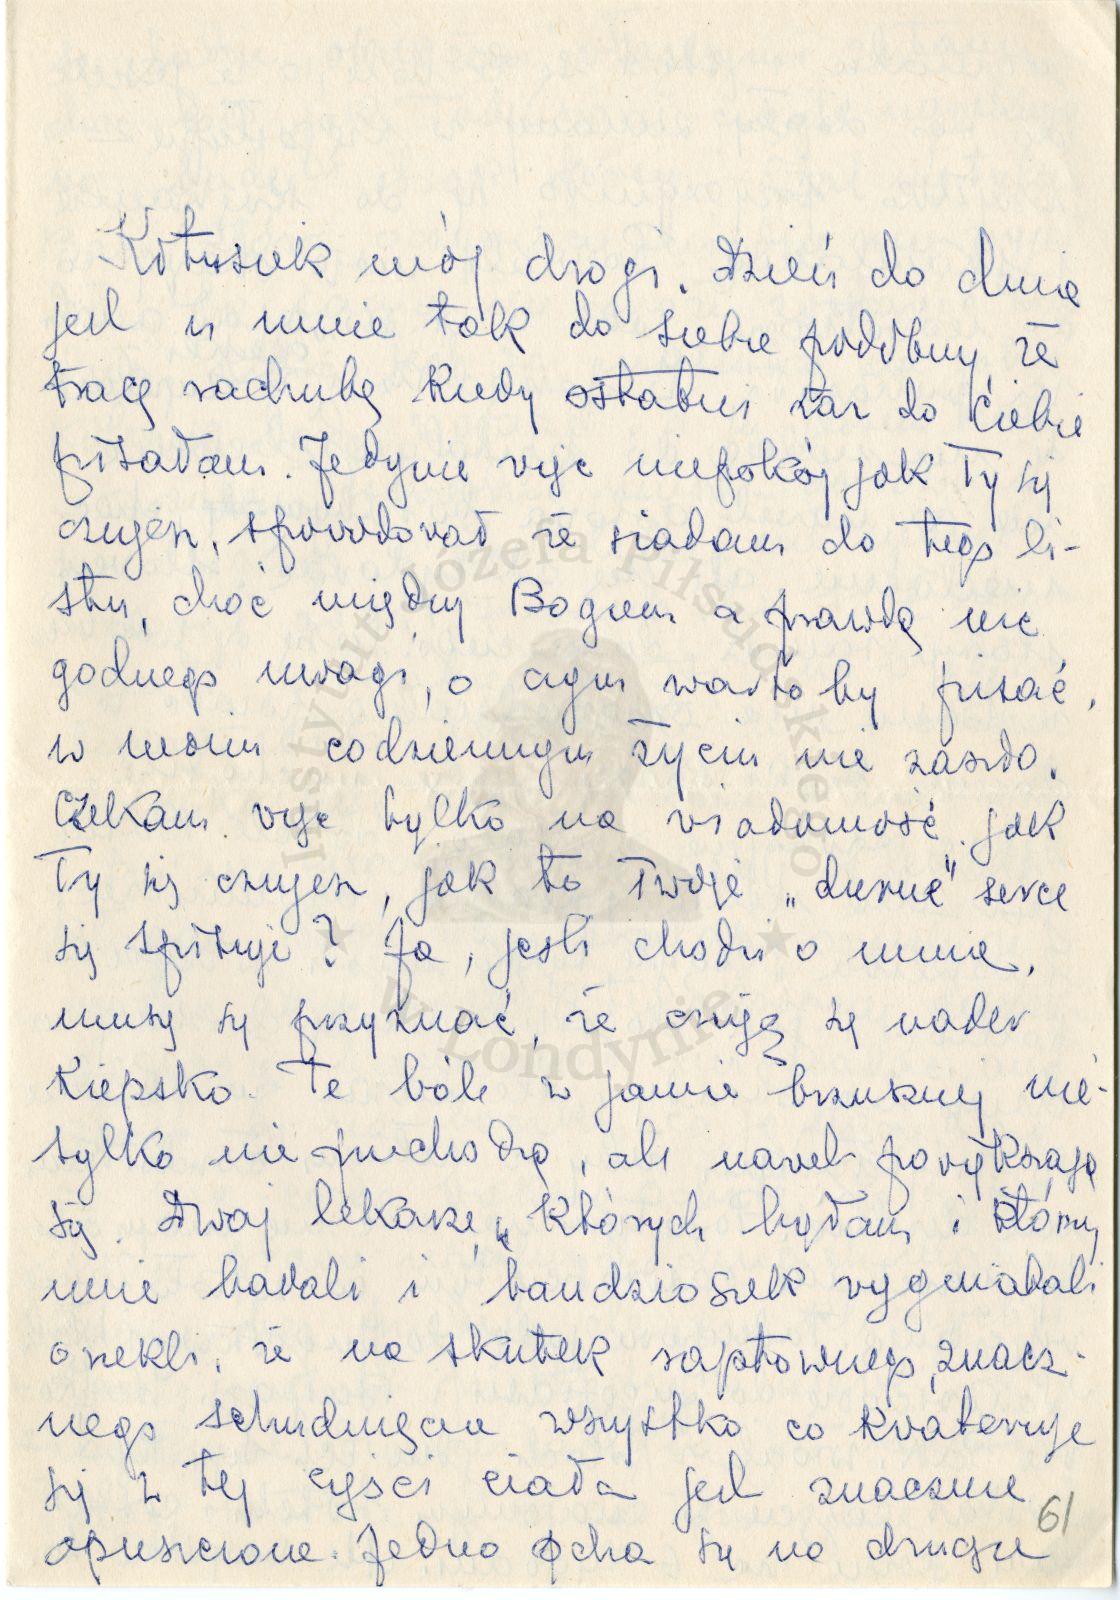 Kotusiek mój drogi. Dzień do dnia
jest u mnie tak do siebie podobny, że
tracę rachubę kiedy ostatni raz do Ciebie
pisałam. Jedynie więc niepokój jak Ty się
czujesz, spowodował że siadam do tego li-
stu, choć między Bogiem a prawdą nic
godnego uwagi, o czym warto by pisać,
w moim codziennym życiu nie zaszło.
Czekam więc tylko na wiadomość jak
Ty się czujesz, jak to Twoje „durne" serce
się spisuje? Ja, jeśli chodzi o mnie,
muszę się przyznać, że czuję się nader
kiepsko. Te bóle w jamie brzusznej nie-
tylko nie przechodzą, ale nawet powiększają
się. Dwaj lekarze, u których byłam i którzy
mnie badali i bandziosek wygniatali
orzekli, że na skutek raptownego, znacz-
nego schudnięcia wszystko co kwateruje
się w tej części ciała jest znacznie
opuszczone. Jedno pcha się na drugie
61
Instytut Józefa Piłsudskiego
w Londynie